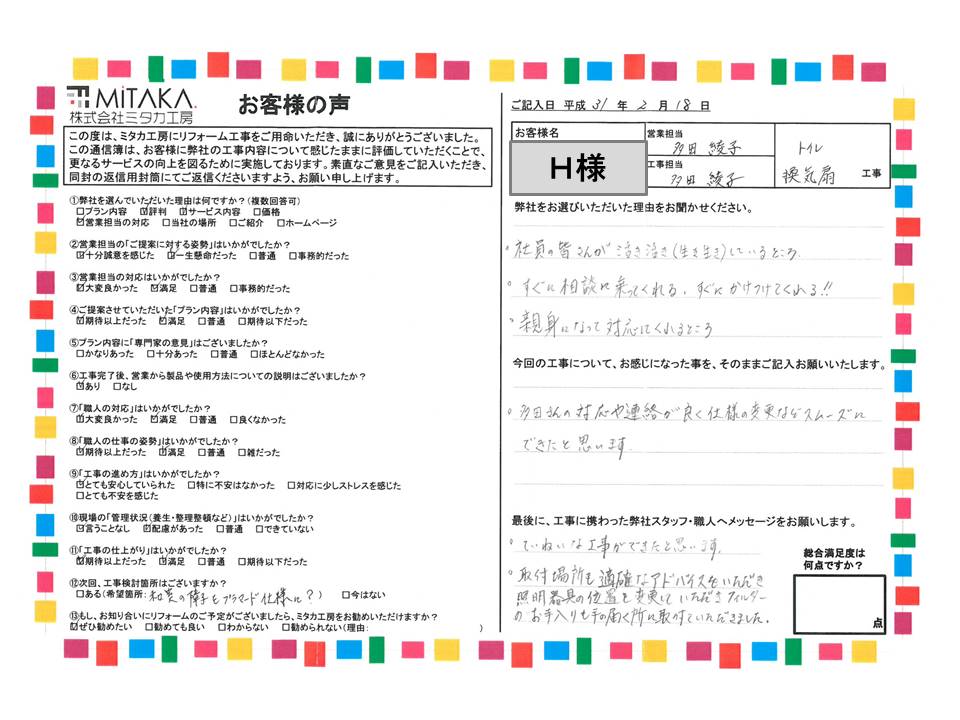 MiTAKA
株式会社ミタカ工房
お客様の声
この度は、ミタカ工房にリフォーム工事をご用命いただき、誠にありがとうございました。
この通信簿は、お客様に弊社の工事内容について感じたままに評価していただくことで、
更なるサービスの向上を図るために実施しております。素直なご意見をご記入いただき、
同封の返信用封筒にてご返信くださいますよう、お願い申し上げます。
①弊社を選んでいただいた理由は何ですか?(複数回答可)
□プラン内容 ☑評判 ☑サービス内容 □価格
☑営業担当の対応 □当社の場所 □ご紹介 □ホームページ
②営業担当の「ご提案に対する姿勢」はいかがでしたか?
☑十分誠意を感じた ☑一生懸命だった □普通 □事務的だった
③営業担当の対応はいかがでしたか?
☑大変良かった ☑満足 □普通 □事務的だった
④ご提案させていただいた「プラン内容」はいかがでしたか?
☑期待以上だった ☑満足 □普通 □期待以下だった
⑤プラン内容に「専門家の意見」はございましたか?
□かなりあった □十分あった □普通 □ほとんどなかった
⑥工事完了後、営業から製品や使用方法についての説明はございましたか?
☑あり □なし
⑦「職人の対応」はいかがでしたか?
☑大変良かった ☑満足 □普通 □良くなかった
⑧「職人の仕事の姿勢」はいかがでしたか?
☑期待以上だった ☑満足 □普通 □雑だった
⑨「工事の進め方」はいかがでしたか?
☑とても安心していられた □特に不安はなかった □対応に少しストレスを感じた
□とても不安を感じた
⑩現場の「管理状況(養生・整理整頓など)」はいかがでしたか?
☑言うことなし ☑配慮があった □普通 □できていない
⑪「工事の仕上がり」はいかがでしたか?
☑期待以上だった ☑満足 □普通 □期待以下だった
⑫次回、工事検討箇所はございますか?
□ある(希望箇所:和室の障子をプリマード仕様に?) □今はない
⑬もし、お知り合いにリフォームのご予定がございましたら、ミタカ工房をお勧めいただけますか?
☑ぜひ勧めたい □勧めても良い □わからない □勧められない(理由: )
ご記入日 平成 31 年 2 月 18 日
お客様名
H様
営業担当
多田 綾子
工事担当
多田 綾子
トイレ
換気扇 工事
弊社をお選びいただいた理由をお聞かせください。
。社員の皆さんが活き活き(生き生き)しているところ.
。すぐに相談に乗ってくれる. すぐにかけつけてくれる!!
。親身になって対応してくれるところ
今回の工事について、お感じになった事を、そのままご記入お願いいたします。
。多田さんの対応や連絡が良く仕様の変更などスムーズに
できたと思います.
最後に、工事に携わった弊社スタッフ・職人へメッセージをお願いします。
。ていねいな工事ができたと思います.
。取付場所も適確なアドバイスをいただき
照明器具の位置を変更していただきフィルター
のお手入りも手の届く所に取付ていただきました.
総合満足度は
何点ですか?
点